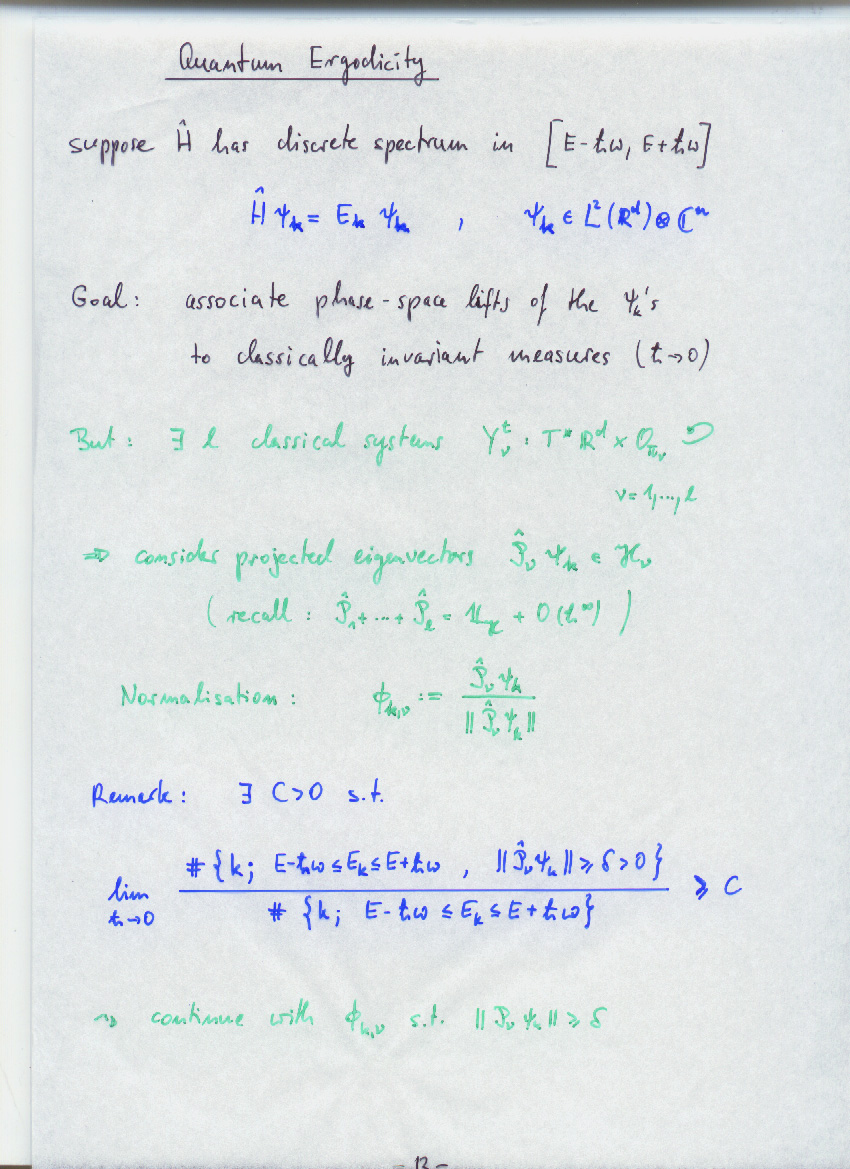 Quantum Ergodicity
suppose Ĥ has discrete spectrum in [E-ħω, E+ħω]
Ĥ ψ_k = E_k ψ_k , ψ_k ∈ L²(ℝ^d) ⊗ ℂⁿ
Goal: associate phase-space lifts of the ψ_k's
to classically invariant measures (ħ→0)
But: ∃ l classical systems Y_ν^t : T*ℝ^d × O_{π_ν} ↺
ν=1,...,l
⇒ consider projected eigenvectors 𝒫̂_ν ψ_k ∈ ℋ_ν
(recall: 𝒫̂_1+...+𝒫̂_l = 𝟙_ℋ + O(ħ^∞))
Normalisation: ϕ_{k,ν} := 𝒫̂_ν ψ_k / ||𝒫̂_ν ψ_k||
Remark: ∃ C>0 s.t.
lim_{ħ→0} #{k; E-ħω ≤ E_k ≤ E+ħω , ||𝒫̂_ν ψ_k|| ≥ δ > 0} / #{k; E-ħω ≤ E_k ≤ E+ħω} ≥ C
⇝ continue with ϕ_{k,ν} s.t. ||𝒫_ν ψ_k|| ≥ δ
- 12 -